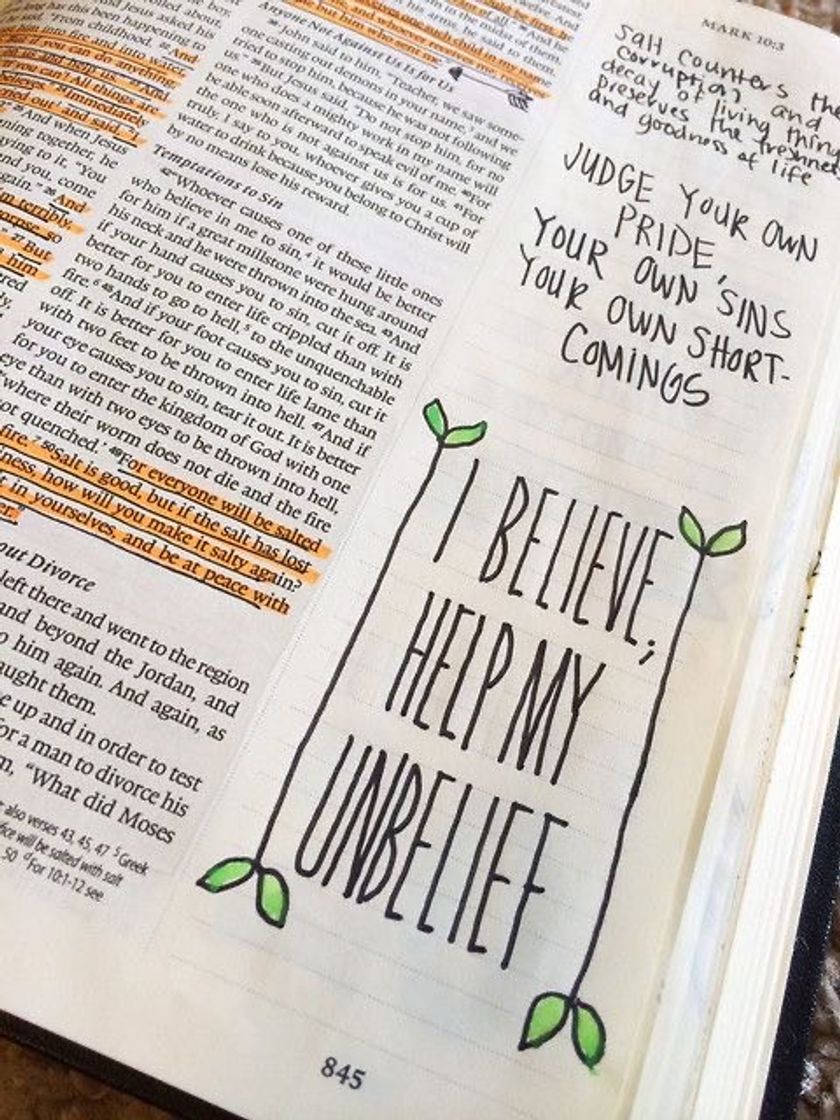 MARK 10:3
long has this been happening to
"From childhood. And
into fire and into water
you can do anything
can'! All things are
immediately
out and said, "I
And when Jesus
ning together, he
ying to it, "You
and you, come
again." 26 And
im terribly,
corpse, so
" 27 But
him
Anyone Not Against Us Is for Us
38 John said to him, "Teacher, we saw some-
one casting out demons in your name, and we
tried to stop him, because he was not following
us." 39 But Jesus said, "Do not stop him, for no
one who does a mighty work in my name will
be able soon afterward to speak evil of me. 40 For
the one who is not against us is for us. 41 For
truly, I say to you, whoever gives you a cup of
water to drink because you belong to Christ will
by no means lose his reward.
Temptations to Sin
42 "Whoever causes one of these little ones
who believe in me to sin, 4 it would be better
for him if a great millstone were hung around
his neck and he were thrown into the sea. 43 And
if your hand causes you to sin, cut it off. It is
better for you to enter life crippled than with
two hands to go to hell, 5 to the unquenchable
fire. 6 45 And if your foot causes you to sin, cut it
off. It is better for you to enter life lame than
with two feet to be thrown into hell. 47 And if
your eye causes you to sin, tear it out. It is better
for you to enter the kingdom of God with one
eye than with two eyes to be thrown into hell,
'where their worm does not die and the fire
not quenched.' 49 For everyone will be salted
fire. 7 50 Salt is good, but if the salt has lost
iness, how will you make it salty again?
t in yourselves, and be at peace with
er."
out Divorce
left there and went to the region
and beyond the Jordan, and
o him again. And again, as
aught them.
e up and in order to test
for a man to divorce his
m, "What did Moses
also verses 43, 45, 47 5 Greek
fice will be salted with salt
50 a For 10:1-12 see
salt counters the
corruption and
decay of living thing
preserves the freshness
and goodness of life
JUDGE YOUR OWN
PRIDE,
YOUR OWN SINS
YOUR OWN SHORT-
COMINGS
I BELIEVE;
HELP MY
UNBELIEF
845